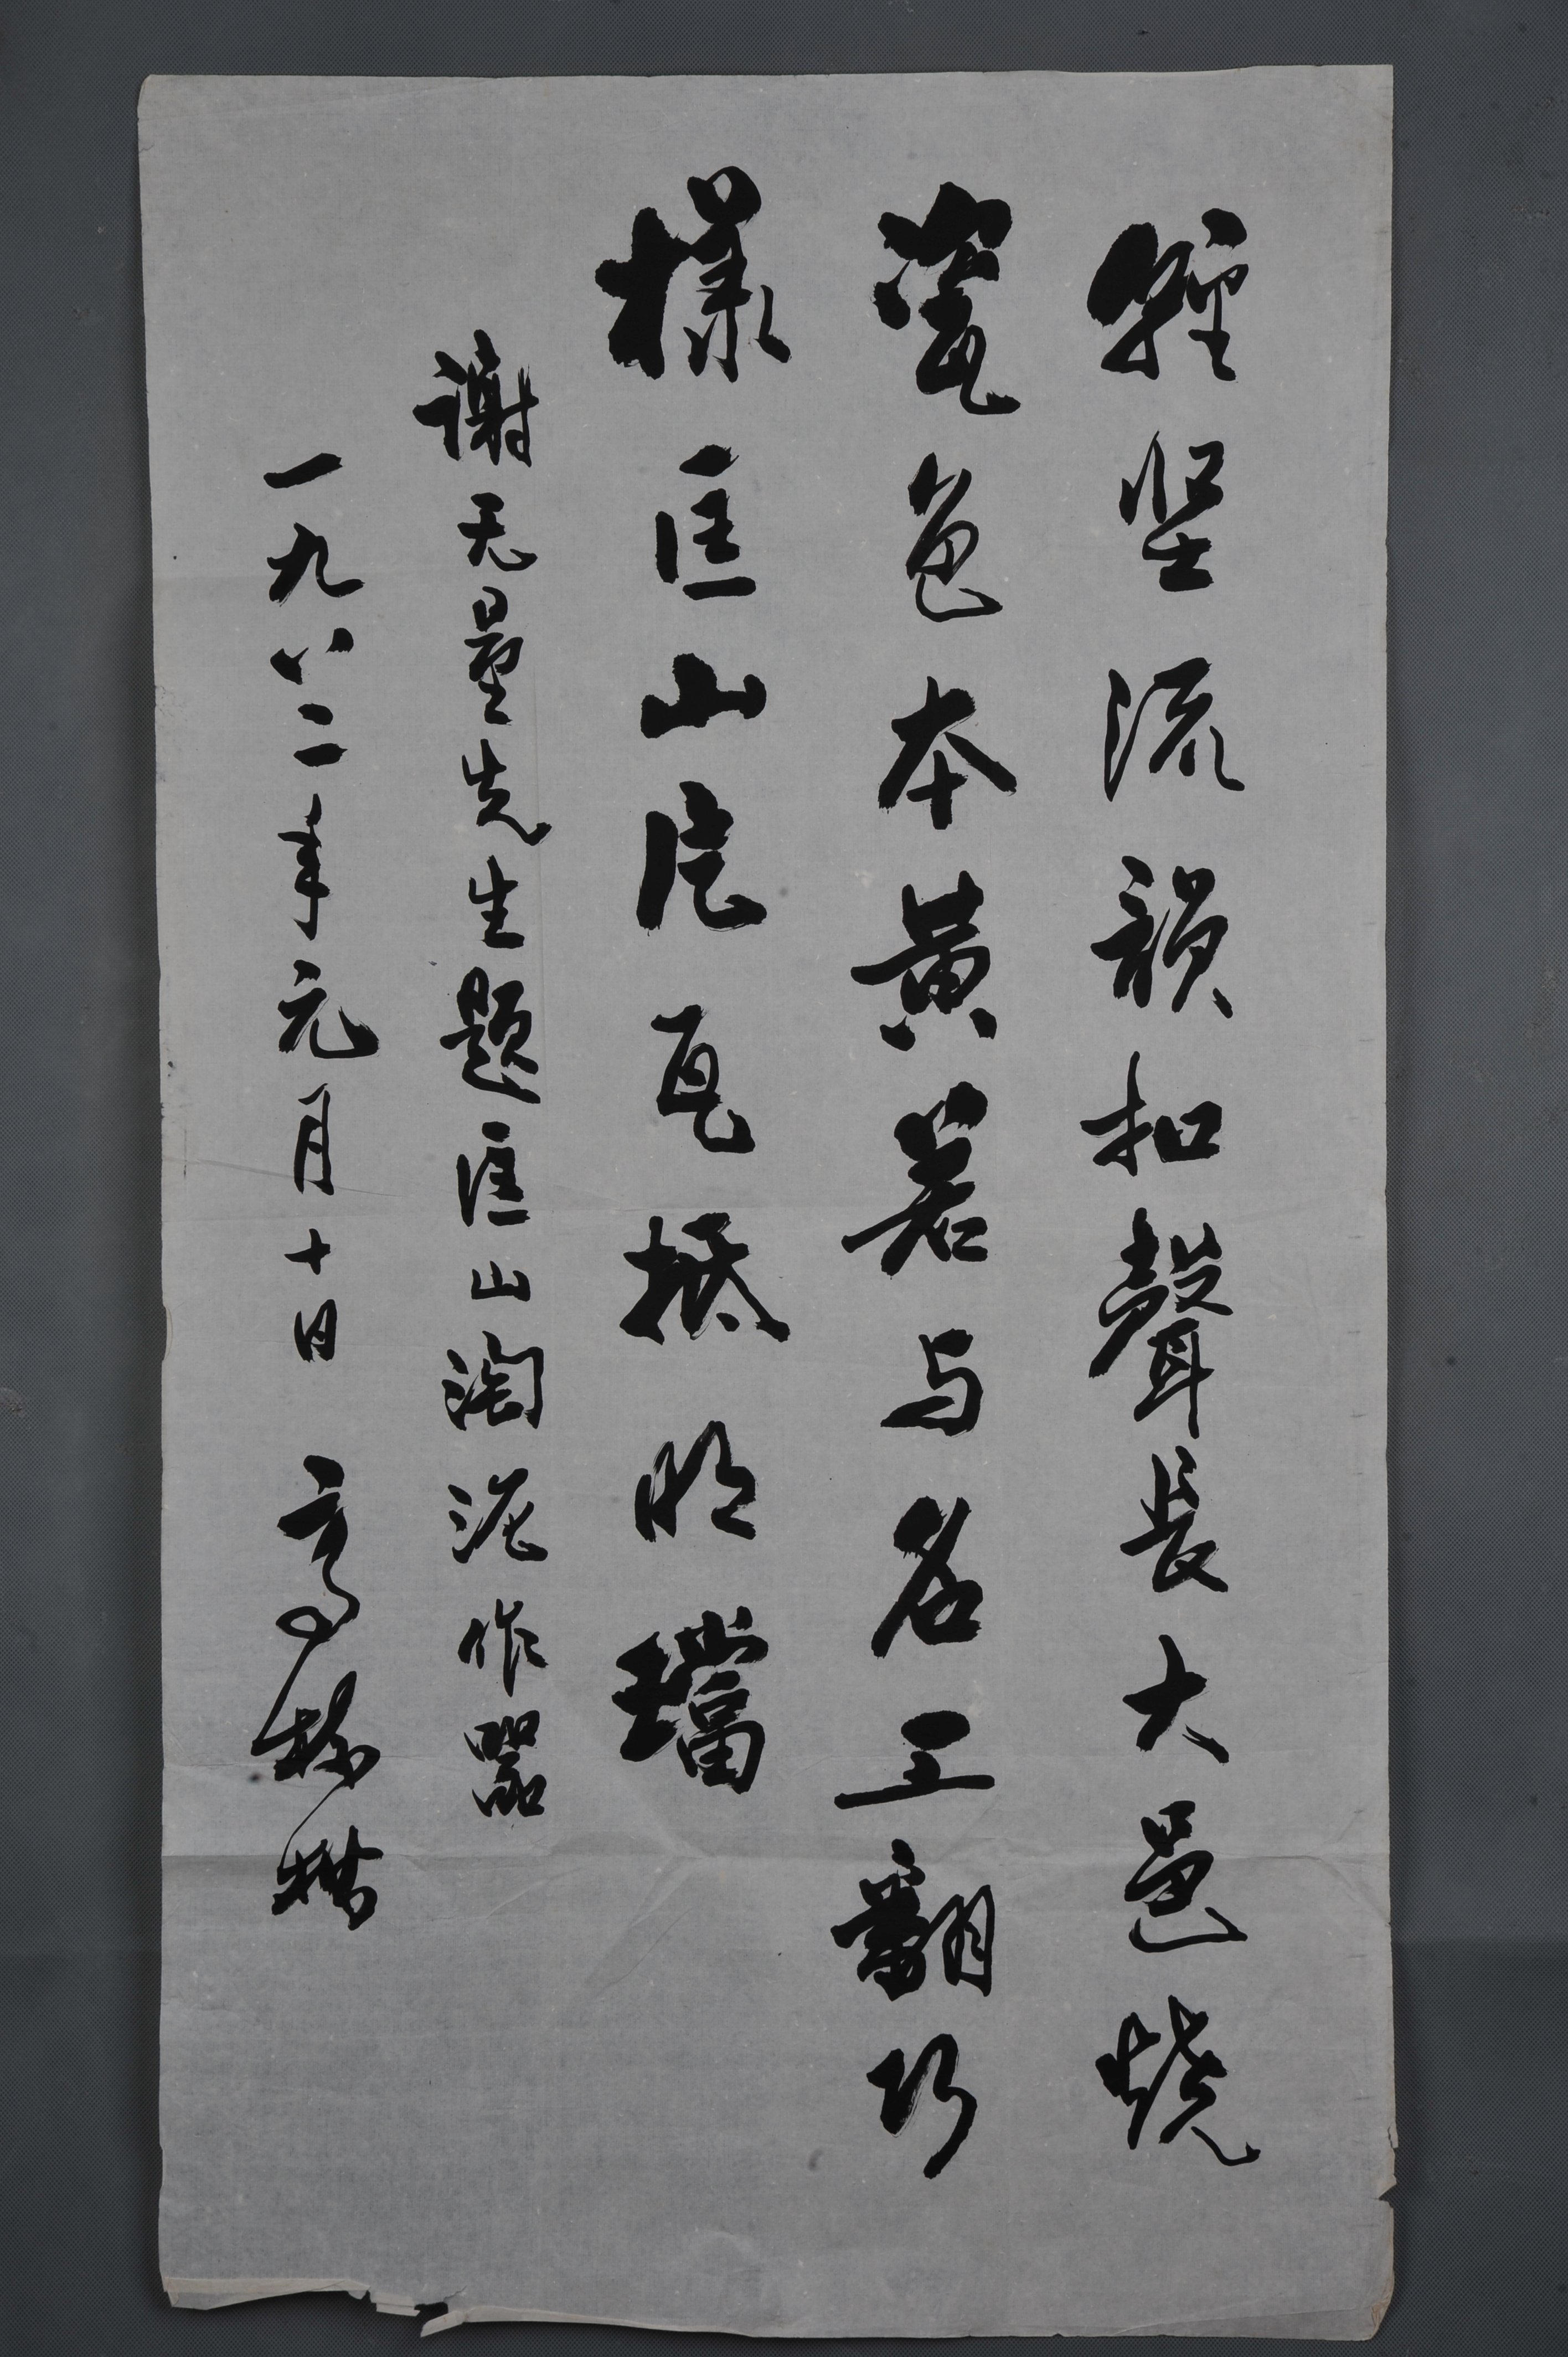 轻坚流韵扣聲长大邑烧
瓷色本黄若与名工翻巧
樣匡山片瓦抵明璫
谢无量先生题匡山淘泥作器
一九八二年元月十日 高